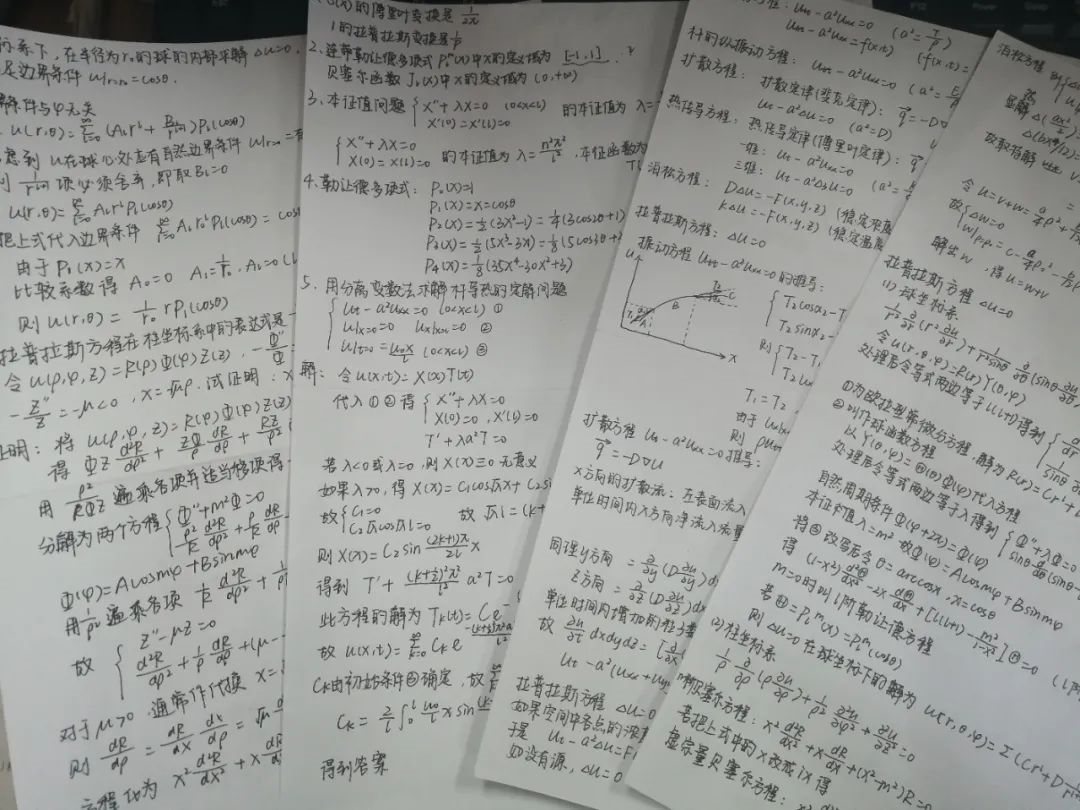 标系下,在半径为r₀的球的内部求解 Δu=0,
足边界条件 u|r=r₀=cosθ.
解条件与φ无关
u(r,θ)=Σ(Aₗrˡ+Bₗ/rˡ⁺¹)Pₗ(cosθ)
虑到 u在球心处应有自然边界条件 u|r=0=有
则 1/rˡ⁺¹项必须舍弃,即取Bₗ=0
u(r,θ)=ΣAₗrˡPₗ(cosθ)
把上式代入边界条件 ΣAₗr₀ˡPₗ(cosθ)=cosθ
由于P₁(x)=x
比较系数得 A₀=0 A₁=1/r₀, Aₗ=0 (l
则 u(r,θ)=1/r₀ rP₁(cosθ)
拉普拉斯方程在柱坐标系中的表达式是
令u(ρ,φ,z)=R(ρ)Φ(φ)Z(z), -Φ''/Φ
-Z''/Z=-μ<0, x=√μρ.试证明:x
证明:将 u(ρ,φ,z)=R(ρ)Φ(φ)Z(z)
得 ΦZ d²R/dρ²+ZΦ/ρ dR/dρ+RZ/ρ²
用 ρ²/RΦZ 遍乘各项并适当移项得
分解为两个方程{Φ''+m²Φ=0
ρ²/R d²R/dρ²+ρ/R dR/dρ
Φ(φ)=Acosmφ+Bsinmφ
用1/ρ²遍乘各项 1/R d²R/dρ²+1/ρ
故{Z''-μZ=0
d²R/dρ²+1/ρ dR/dρ+(μ-
对于μ>0,通常作代换 x=
则 dR/dρ=dR/dx dx/dρ=√μ d
方程化为 x² d²R/dx²+x dR
的傅里叶变换是 1/2π
1的拉普拉斯变换是1/p
2.连带勒让德多项式 Pₗᵐ(x)中x的定义域为 [-1,1].
贝塞尔函数 Jₙ(x)中x的定义域为(0,+∞)
3.本征值问题{X''+λX=0 (0<x<l)
X'(0)=X'(l)=0 的本征值为 λ=
{X''+λX=0
X(0)=X(l)=0 的本征值为 λ=n²π²/l²,本征函数为
4.勒让德多项式: P₀(x)=1
P₁(x)=x=cosθ
P₂(x)=½(3x²-1)=¼(3cos2θ+1)
P₃(x)=½(5x³-3x)=⅛(5cos3θ+3
P₄(x)=⅛(35x⁴-30x²+3)
5.用分离变数法求解杆导热的定解问题
{uₜ-a²uₓₓ=0 (0<x<l) ①
u|x=0=0 uₓ|x=l=0 ②
u|t=0=u₀x/l (0<x<l) ③
解: 令u(x,t)=X(x)T(t)
代入①②得{X''+λX=0
X(0)=0,X'(l)=0
T'+λa²T=0
若λ<0或λ=0,则X(x)≡0无意义
如果λ>0,得X(x)=C₁cos√λx+C₂sin
故{C₁=0
C₂√λcos√λl=0 故√λl=(k+
则X(x)=C₂sin (2k+1)π/2l x
得到 T'+(k+½)²π²/l² a²T=0
此方程的解为Tₖ(t)=Ce⁻
故u(x,t)=ΣCₖe
Cₖ由初始条件③确定,故
Cₖ=2/l∫₀ˡ u₀/l x sin (k
得到答案
方程: uₜₜ-a²uₓₓ=0 (a²=T/ρ)
uₜₜ-a²uₓₓ=f(x,t) (f(x,t)=
杆的纵振动方程: uₜₜ-a²uₓₓ=0 (a²=E/ρ
扩散方程: 扩散定律(斐克定律): q=-D∇
uₜ-a²Δu=0 (a²=D)
热传导方程: 热传导定律(傅里叶定律): q
一维: uₜ-a²uₓₓ=0 (a²=
三维: uₜ-a²Δ₃u=0
泊松方程: DΔu=-F(x,y,z) (稳定浓度
kΔu=-F(x,y,z) (稳定温度
拉普拉斯方程: Δu=0
振动方程 uₜₜ-a²uₓₓ=0的推导:
u
T₁
A
B
C
x
{T₂cosα₂-T
T₂sinα₂-
则{T₂-T₁
T₂uₓ
T₁=T₂
由于
则 ρuₜₜ
扩散方程 uₜ-a²uₓₓ=0推导:
q=-D∇u
x方向的扩散流:左表面流入
单位时间内x方向净流入流量
同理y方向 = ∂/∂y(D ∂u/∂y)d
z方向 = ∂/∂z(D ∂u/∂z)dx
单位时间内增加的粒子数
故 ∂u/∂t dxdydz=[∂/∂x
uₜ-a²(uₓₓ+uyy
拉普拉斯方程 Δu=0
如果空间中各点的浓
于是 uₜ-a²Δu=F
如没有源,Δu=0
泊松方程
显解 Δ(ax²/2)=
Δ(bx⁴/12)=
故取特解 v
令u=v+w=a/4 ρ²+b/
故{Δw=0
w|ρ=ρ₀=c-a/4 ρ₀²-b/
解出w,得u=v+w
拉普拉斯方程 Δu=0
(1)球坐标系
1/r² ∂/∂r(r² ∂u/∂r)+1/r²sinθ ∂/∂θ(sinθ ∂u/∂θ)
令u(r,θ,φ)=R(r)Y(θ,φ)
处理后令等式两边等于l(l+1)得到{d/dr
1/sinθ
①为欧拉型常微分方程,解为R(r)=Crˡ+
②叫作球函数方程
以Y(θ,φ)=Θ(θ)Φ(φ)代入方程
处理后令等式两边等于λ得到{Φ''+λΦ=0
sinθ d/dθ(sinθ
自然周期条件Φ(φ+2π)=Φ(φ)
本征值λ=m² 故Φ(φ)=Acosmφ+Bsinmφ
将④改写后令θ=arccosx,x=cosθ
得 (1-x²)d²Θ/dx²-2x dΘ/dx+[l(l+1)-m²/(1-x²)]Θ=0
m=0时叫l阶勒让德方程
若Θ=Pₗᵐ(x)=Pₗᵐ(cosθ)
则 Δu=0在球坐标下的解为 u(r,θ,φ)=Σ(Crˡ+D 1/rˡ⁺¹
(2)柱坐标系
1/ρ ∂/∂ρ(ρ ∂u/∂ρ)+1/ρ² ∂²u/∂φ²+∂²u/∂z²=0
阶贝塞尔方程: x² d²R/dx²+x dR/dx+(x²-m²)R=0
若把上式中的x改成ix得
虚宗量贝塞尔方程: x²